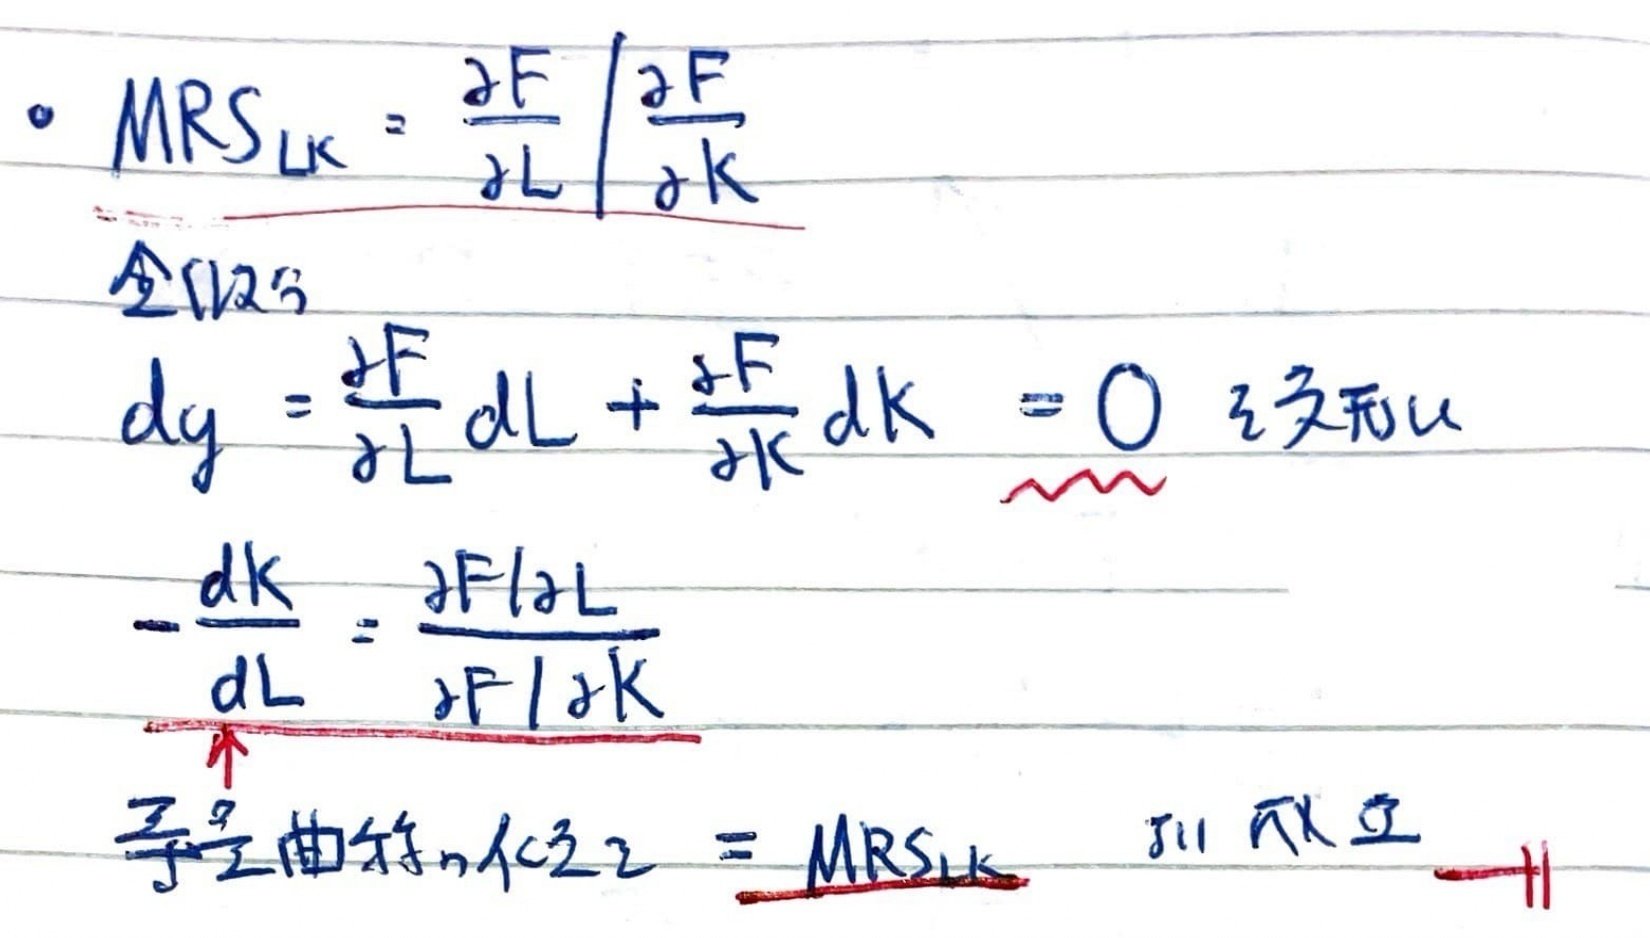 • MRS_LK = ∂F/∂L / ∂F/∂K
全微分
dy = ∂F/∂L dL + ∂F/∂K dK = 0
- dK/dL = ∂F/∂L / ∂F/∂K
等量曲線の = MRS_LK 成立